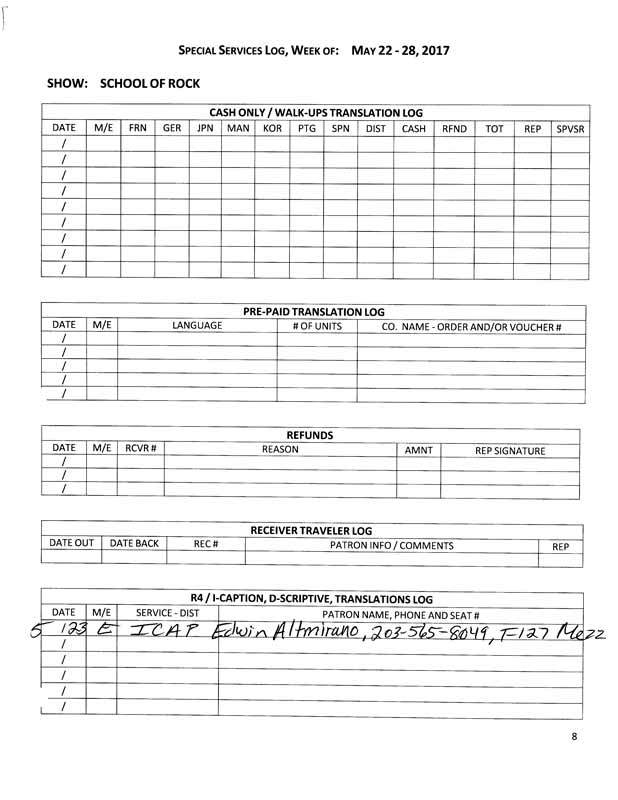 SPECIAL SERVICES LOG, WEEK OF: MAY 22 - 28, 2017
SHOW: SCHOOL OF ROCK
CASH ONLY / WALK-UPS TRANSLATION LOG
DATE M/E FRN GER JPN MAN KOR PTG SPN DIST CASH RFND TOT REP SPVSR
/
/
/
/
/
/
/
/
/
PRE-PAID TRANSLATION LOG
DATE M/E LANGUAGE # OF UNITS CO. NAME - ORDER AND/OR VOUCHER #
/
/
/
/
/
REFUNDS
DATE M/E RCVR # REASON AMNT REP SIGNATURE
/
/
/
RECEIVER TRAVELER LOG
DATE OUT DATE BACK REC # PATRON INFO / COMMENTS REP
R4 / I-CAPTION, D-SCRIPTIVE, TRANSLATIONS LOG
DATE M/E SERVICE - DIST PATRON NAME, PHONE AND SEAT #
5 /23 E ICAP Edwin Altmirano, 203-565-8049, F-127 Mezz
/
/
/
/
/
8